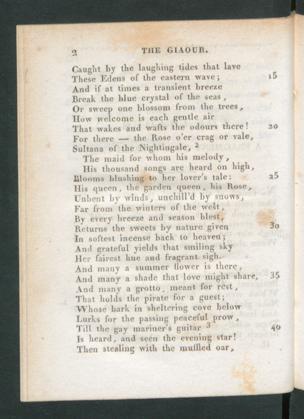 2 THE GIAOUR.
Caught by the laughing tides that lave
These Edens of the eastern wave; 15
And if at times a transient breeze
Break the blue crystal of the seas,
Or sweep one blossom from the trees,
How welcome is each gentle air
That wakes and wafts the odours there! 20
For there — the Rose o'er crag or vale,
Sultana of the Nightingale, 2
The maid for whom his melody,
His thousand songs are heard on high,
Blooms blushing to her lover's tale: 25
His queen, the garden queen, his Rose,
Unbent by winds, unchill'd by snows,
Far from the winters of the west,
By every breeze and season blest,
Returns the sweets by nature given 30
In softest incense back to heaven;
And grateful yields that smiling sky
Her fairest hue and fragrant sigh.
And many a summer flower is there,
And many a shade that love might share, 35
And many a grotto, meant for rest,
That holds the pirate for a guest;
Whose bark in sheltering cove below
Lurks for the passing peaceful prow,
Till the gay mariner's guitar 3 40
Is heard, and seen the evening star!
Then stealing with the muffled oar,